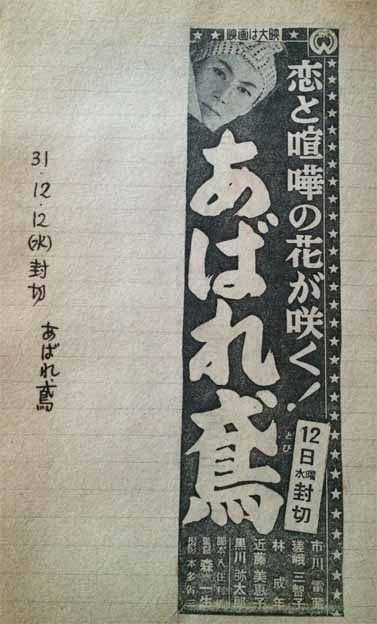 映画は大映
恋と喧嘩の花が咲く!
あばれ鳶
とび
12日水曜封切
市川雷蔵
瑳峨三智子
林成年
近藤美恵子
黒川弥太郎
脚本八住利雄
監督森一生
撮影本多省三
31.12.12(水)封切 あばれ鳶